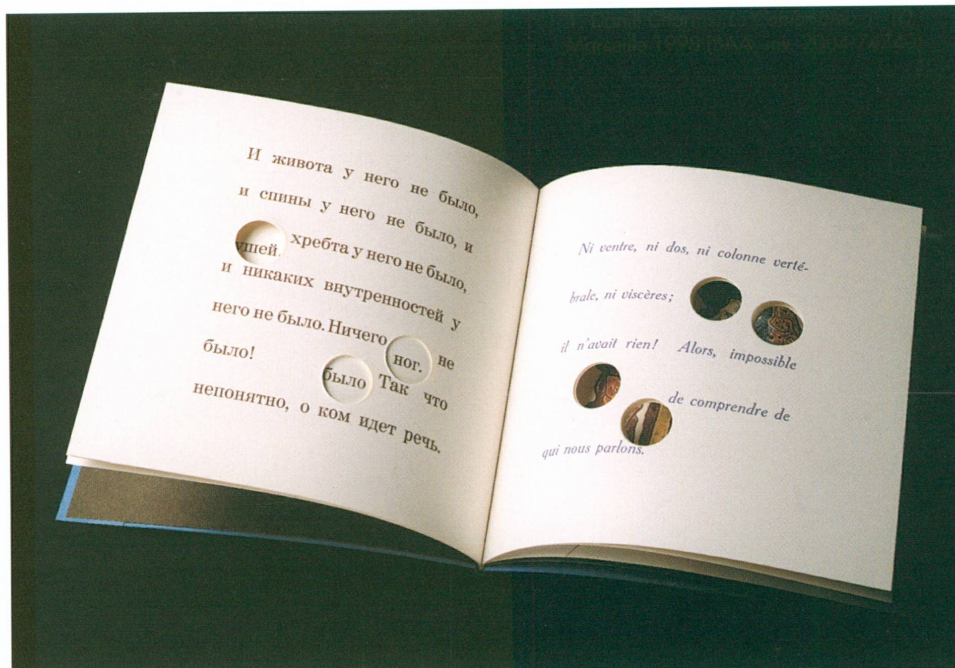 И живота у него не было,
и спины у него не было, и
ушей. хребта у него не было,
и никаких внутренностей у
него не было. Ничего ног. не
было! было Так что
непонятно, о ком идет речь.
Ni ventre, ni dos, ni colonne verté-
brale, ni viscères;
il n'avait rien! Alors, impossible
de comprendre de
qui nous parlons.